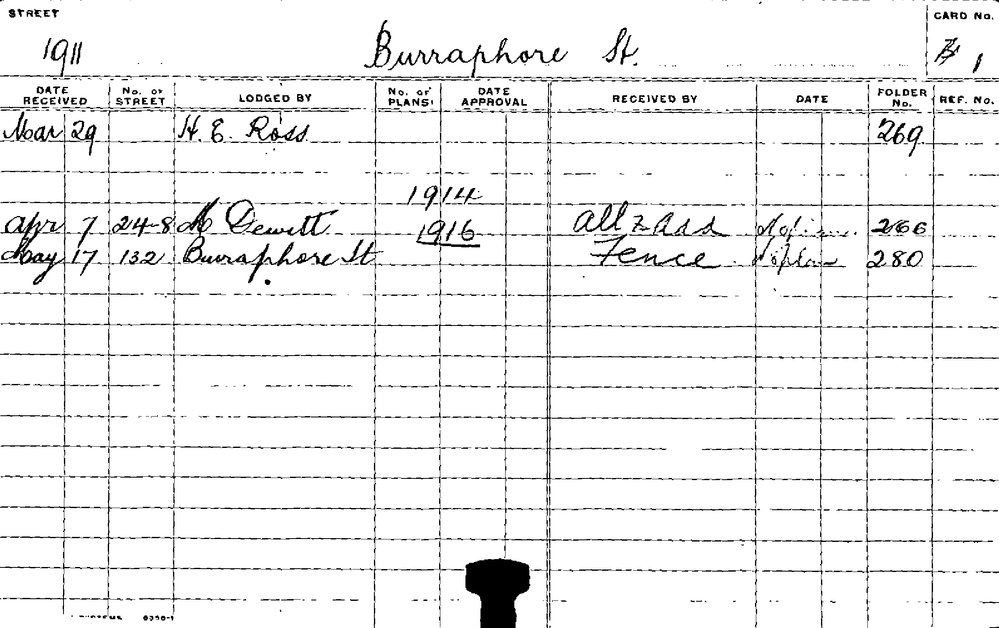 STREET CARD No.
1911 Burraphore St. B 1
DATE RECEIVED No. OF STREET LODGED BY No. OF PLANS: DATE APPROVAL RECEIVED BY DATE FOLDER No. REF. No.
Mar 29 H. E. Ross 269
1914
Apr 7 24-8 M Dewitt 1916 All & Add 266
May 17 132 Burraphore St Fence 280
0350-1